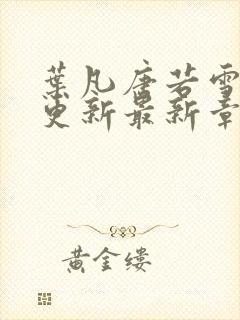 葉凡唐若雪
更新最新章
黄金缕